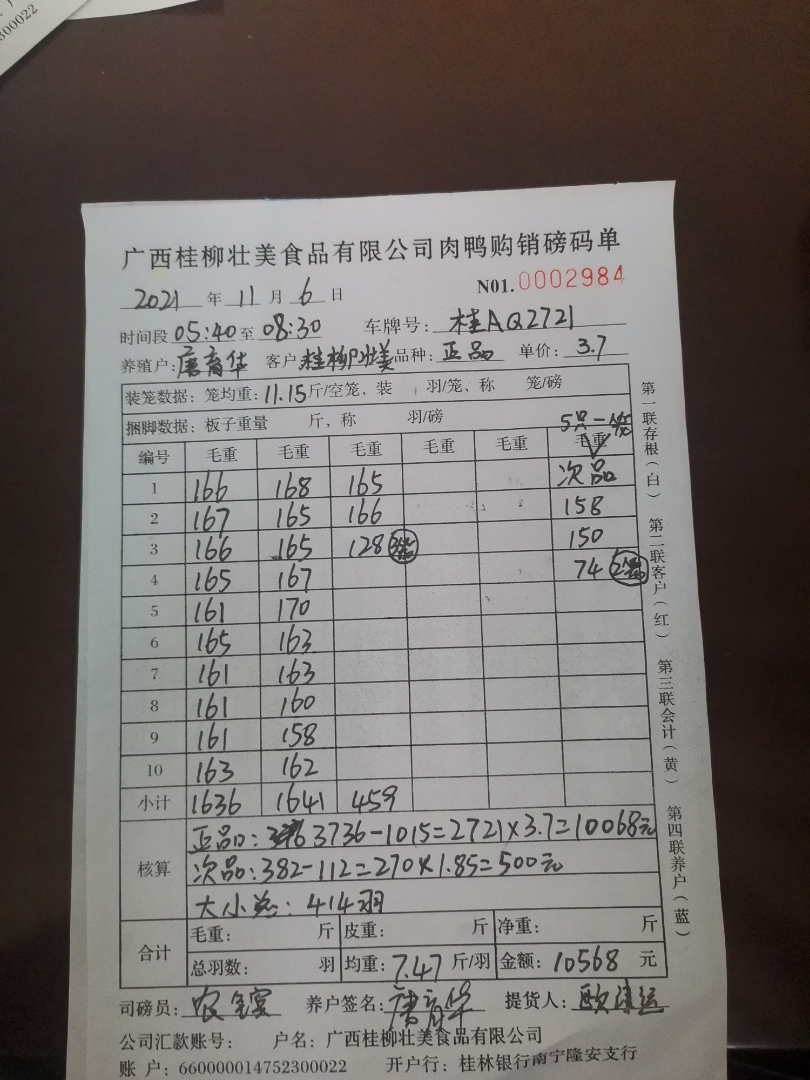 300022
广西桂柳壮美食品有限公司肉鸭购销磅码单
2021 年 11 月 6 日 N01.0002984
时间段 05:40 至 08:30 车牌号: 桂AQ2721
养殖户: 唐育华 客户 桂柳壮美 品种: 正品 单价: 3.7
装笼数据: 笼均重: 11.15 斤/空笼, 装 羽/笼, 称 笼/磅
捆脚数据: 板子重量 斤, 称 羽/磅 5只一笼
编号 毛重 毛重 毛重 毛重 毛重 毛重
1 166 168 165 次品
2 167 165 166 158
3 166 165 128 150
4 165 167 74
5 161 170
6 165 163
7 161 163
8 161 160
9 161 158
10 163 162
小计 1636 1641 459
核算
正品: 3736-1015=2721×3.7=10068元
次品: 382-112=270×1.85=500元
大小总: 414羽
合计
毛重: 斤 皮重: 斤 净重: 斤
总羽数: 羽 均重: 7.47 斤/羽 金额: 10568 元
司磅员: 农 养户签名: 唐育华 提货人: 欧 运
公司汇款账号: 户名: 广西桂柳壮美食品有限公司
账 户: 660000014752300022 开户行: 桂林银行南宁隆安支行
第一联存根(白) 第二联客户(红) 第三联会计(黄) 第四联养户(蓝)